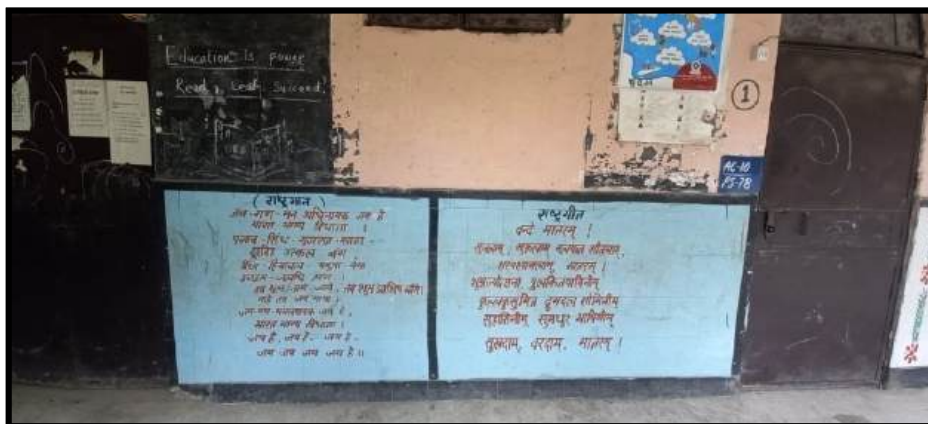 Education is power
Read, Lead, Succeed!
1
AC-10
PS-78
(राष्ट्रगान)
जन-गण-मन अधिनायक जय हे
भारत भाग्य विधाता ।
पंजाब-सिंध-गुजरात-मराठा-
द्राविड़ उत्कल बंग
विंध्य हिमाचल यमुना गंगा
उच्छल-जलधि तरंग ।
तव शुभ नामे जागे, तव शुभ आशिष मांगे।
गाहे तव जय गाथा ।
जन-गण-मंगलदायक जय हे,
भारत भाग्य विधाता ।
जय हे, जय हे, जय हे,
जय जय जय जय हे ॥
राष्ट्रगीत
वन्दे मातरम् !
सुजलाम्, सुफलाम् मलयज शीतलाम्,
शस्यश्यामलाम्, मातरम् !
पुलकितयामिनीम्
फुल्लकुसुमित द्रुमदल शोभिनीम्
सुहासिनीम् सुमधुर भाषिणीम्
सुखदाम्, वरदाम्, मातरम् !